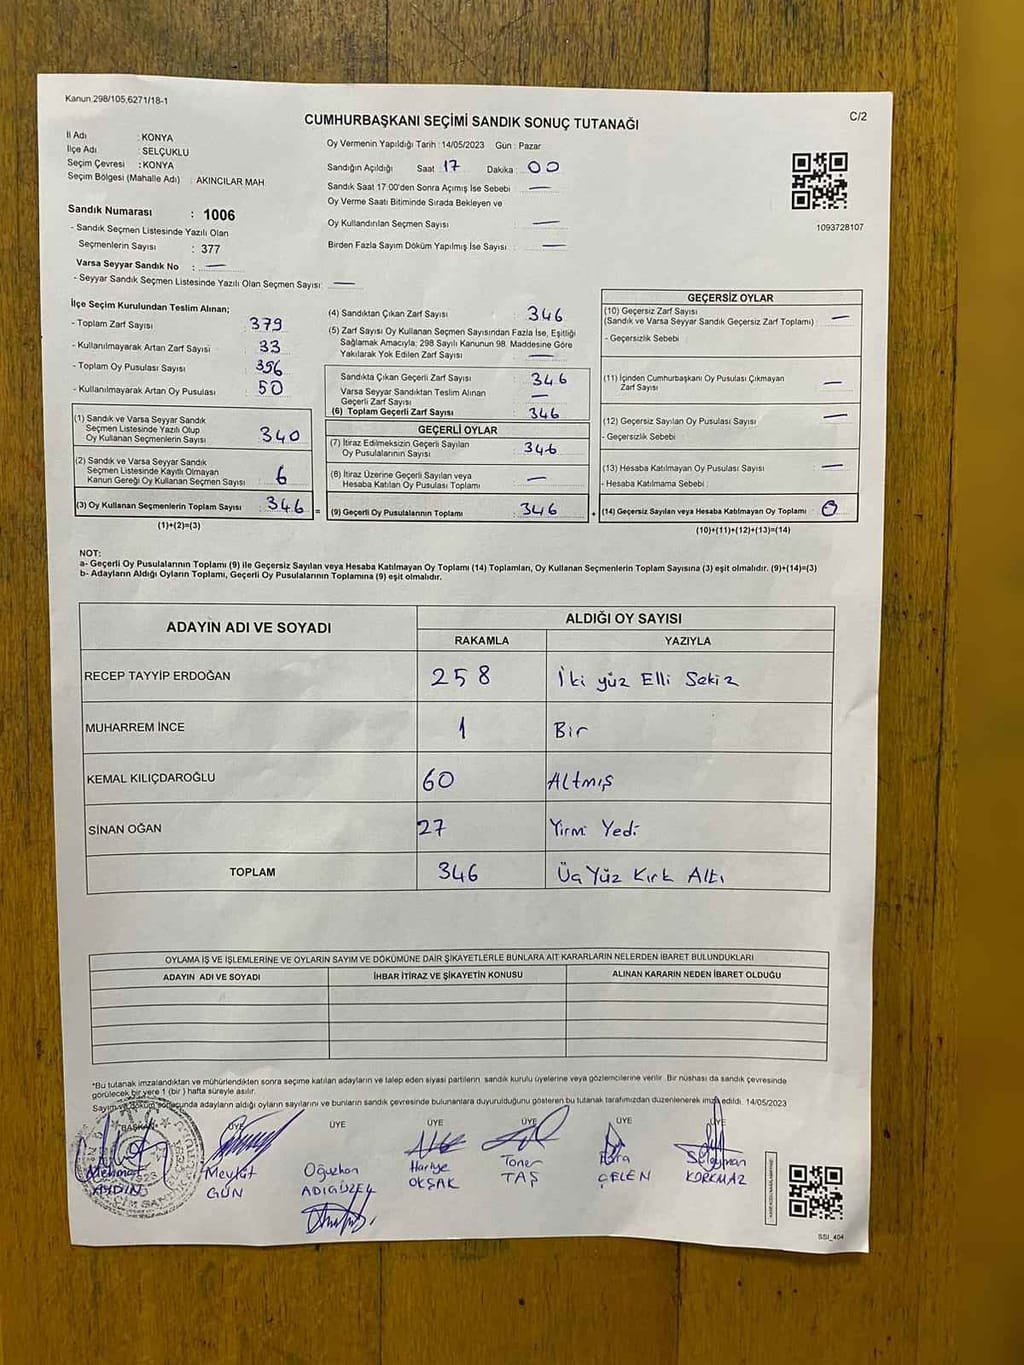 Kanun 298/105,6271/18-1
C/2
CUMHURBAŞKANI SEÇİMİ SANDIK SONUÇ TUTANAĞI
İl Adı : KONYA
İlçe Adı : SELÇUKLU
Seçim Çevresi : KONYA
Seçim Bölgesi (Mahalle Adı) : AKINCILAR MAH
Sandık Numarası : 1006
- Sandık Seçmen Listesinde Yazılı Olan
Seçmenlerin Sayısı : 377
Varsa Seyyar Sandık No : —
- Seyyar Sandık Seçmen Listesinde Yazılı Olan Seçmen Sayısı: —
Oy Vermenin Yapıldığı Tarih : 14/05/2023 Gün : Pazar
Sandığın Açıldığı Saat 17 Dakika : 00
Sandık Saat 17:00'den Sonra Açımış İse Sebebi : —
Oy Verme Saati Bitiminde Sırada Bekleyen ve
Oy Kullandırılan Seçmen Sayısı : —
Birden Fazla Sayım Döküm Yapılmış İse Sayısı : —
1093728107
İlçe Seçim Kurulundan Teslim Alınan;
- Toplam Zarf Sayısı : 379
- Kullanılmayarak Artan Zarf Sayısı : 33
- Toplam Oy Pusulası Sayısı : 396
- Kullanılmayarak Artan Oy Pusulası : 50
(1) Sandık ve Varsa Seyyar Sandık
Seçmen Listesinde Yazılı Olup
Oy Kullanan Seçmenlerin Sayısı : 340
(2) Sandık ve Varsa Seyyar Sandık
Seçmen Listesinde Kayıtlı Olmayan
Kanun Gereği Oy Kullanan Seçmen Sayısı : 6
(3) Oy Kullanan Seçmenlerin Toplam Sayısı : 346
(1)+(2)=(3)
(4) Sandıktan Çıkan Zarf Sayısı : 346
(5) Zarf Sayısı Oy Kullanan Seçmen Sayısından Fazla İse, Eşitliği
Sağlamak Amacıyla; 298 Sayılı Kanunun 98. Maddesine Göre
Yakılarak Yok Edilen Zarf Sayısı : —
Sandıkta Çıkan Geçerli Zarf Sayısı : 346
Varsa Seyyar Sandıktan Teslim Alınan
Geçerli Zarf Sayısı : —
(6) Toplam Geçerli Zarf Sayısı : 346
GEÇERLİ OYLAR
(7) İtiraz Edilmeksizin Geçerli Sayılan
Oy Pusulalarının Sayısı : 346
(8) İtiraz Üzerine Geçerli Sayılan veya
Hesaba Katılan Oy Pusulası Toplamı : —
= (9) Geçerli Oy Pusulalarının Toplamı : 346
GEÇERSİZ OYLAR
(10) Geçersiz Zarf Sayısı
(Sandık ve Varsa Seyyar Sandık Geçersiz Zarf Toplamı) : —
- Geçersizlik Sebebi
(11) İçinden Cumhurbaşkanı Oy Pusulası Çıkmayan
Zarf Sayısı : —
(12) Geçersiz Sayılan Oy Pusulası Sayısı : —
- Geçersizlik Sebebi
(13) Hesaba Katılmayan Oy Pusulası Sayısı : —
- Hesaba Katılmama Sebebi :
+ (14) Geçersiz Sayılan veya Hesaba Katılmayan Oy Toplamı : 0
(10)+(11)+(12)+(13)=(14)
NOT:
a- Geçerli Oy Pusulalarının Toplamı (9) ile Geçersiz Sayılan veya Hesaba Katılmayan Oy Toplamı (14) Toplamları, Oy Kullanan Seçmenlerin Toplam Sayısına (3) eşit olmalıdır. (9)+(14)=(3)
b- Adayların Aldığı Oyların Toplamı, Geçerli Oy Pusulalarının Toplamına (9) eşit olmalıdır.
ADAYIN ADI VE SOYADI
ALDIĞI OY SAYISI
RAKAMLA YAZIYLA
RECEP TAYYİP ERDOĞAN 258 İki yüz Elli Sekiz
MUHARREM İNCE 1 Bir
KEMAL KILIÇDAROĞLU 60 Altmış
SİNAN OĞAN 27 Yirmi Yedi
TOPLAM 346 Üç Yüz Kırk Altı
OYLAMA İŞ VE İŞLEMLERİNE VE OYLARIN SAYIM VE DÖKÜMÜNE DAİR ŞİKAYETLERLE BUNLARA AİT KARARLARIN NELERDEN İBARET BULUNDUKLARI
ADAYIN ADI VE SOYADI İHBAR İTİRAZ VE ŞİKAYETİN KONUSU ALINAN KARARIN NEDEN İBARET OLDUĞU
*Bu tutanak imzalandıktan ve mühürlendikten sonra seçime katılan adayların ve talep eden siyasi partilerin sandık kurulu üyelerine veya gözlemcilerine verilir. Bir nüshası da sandık çevresinde
görülecek bir yere 1 (bir) hafta süreyle asılır.
Sayım ve döküm sonucunda adayların aldığı oyların sayılarını ve bunların sandık çevresinde bulunanlara duyurulduğunu gösteren bu tutanak tarafımızdan düzenlenerek imza edildi. 14/05/2023
BAŞKAN ÜYE ÜYE ÜYE ÜYE ÜYE ÜYE
Mehmet AYDIN
Mevlüt GÜN
Oğuzhan ADIGÜZEL
Hariye OKŞAK
Taner TAŞ
Esra ÇELEN
Süleyman KORKMAZ
SSI_404